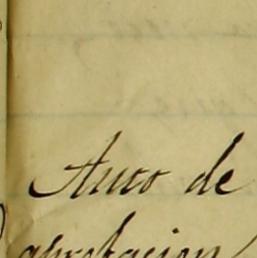 Auto de
aprobacion